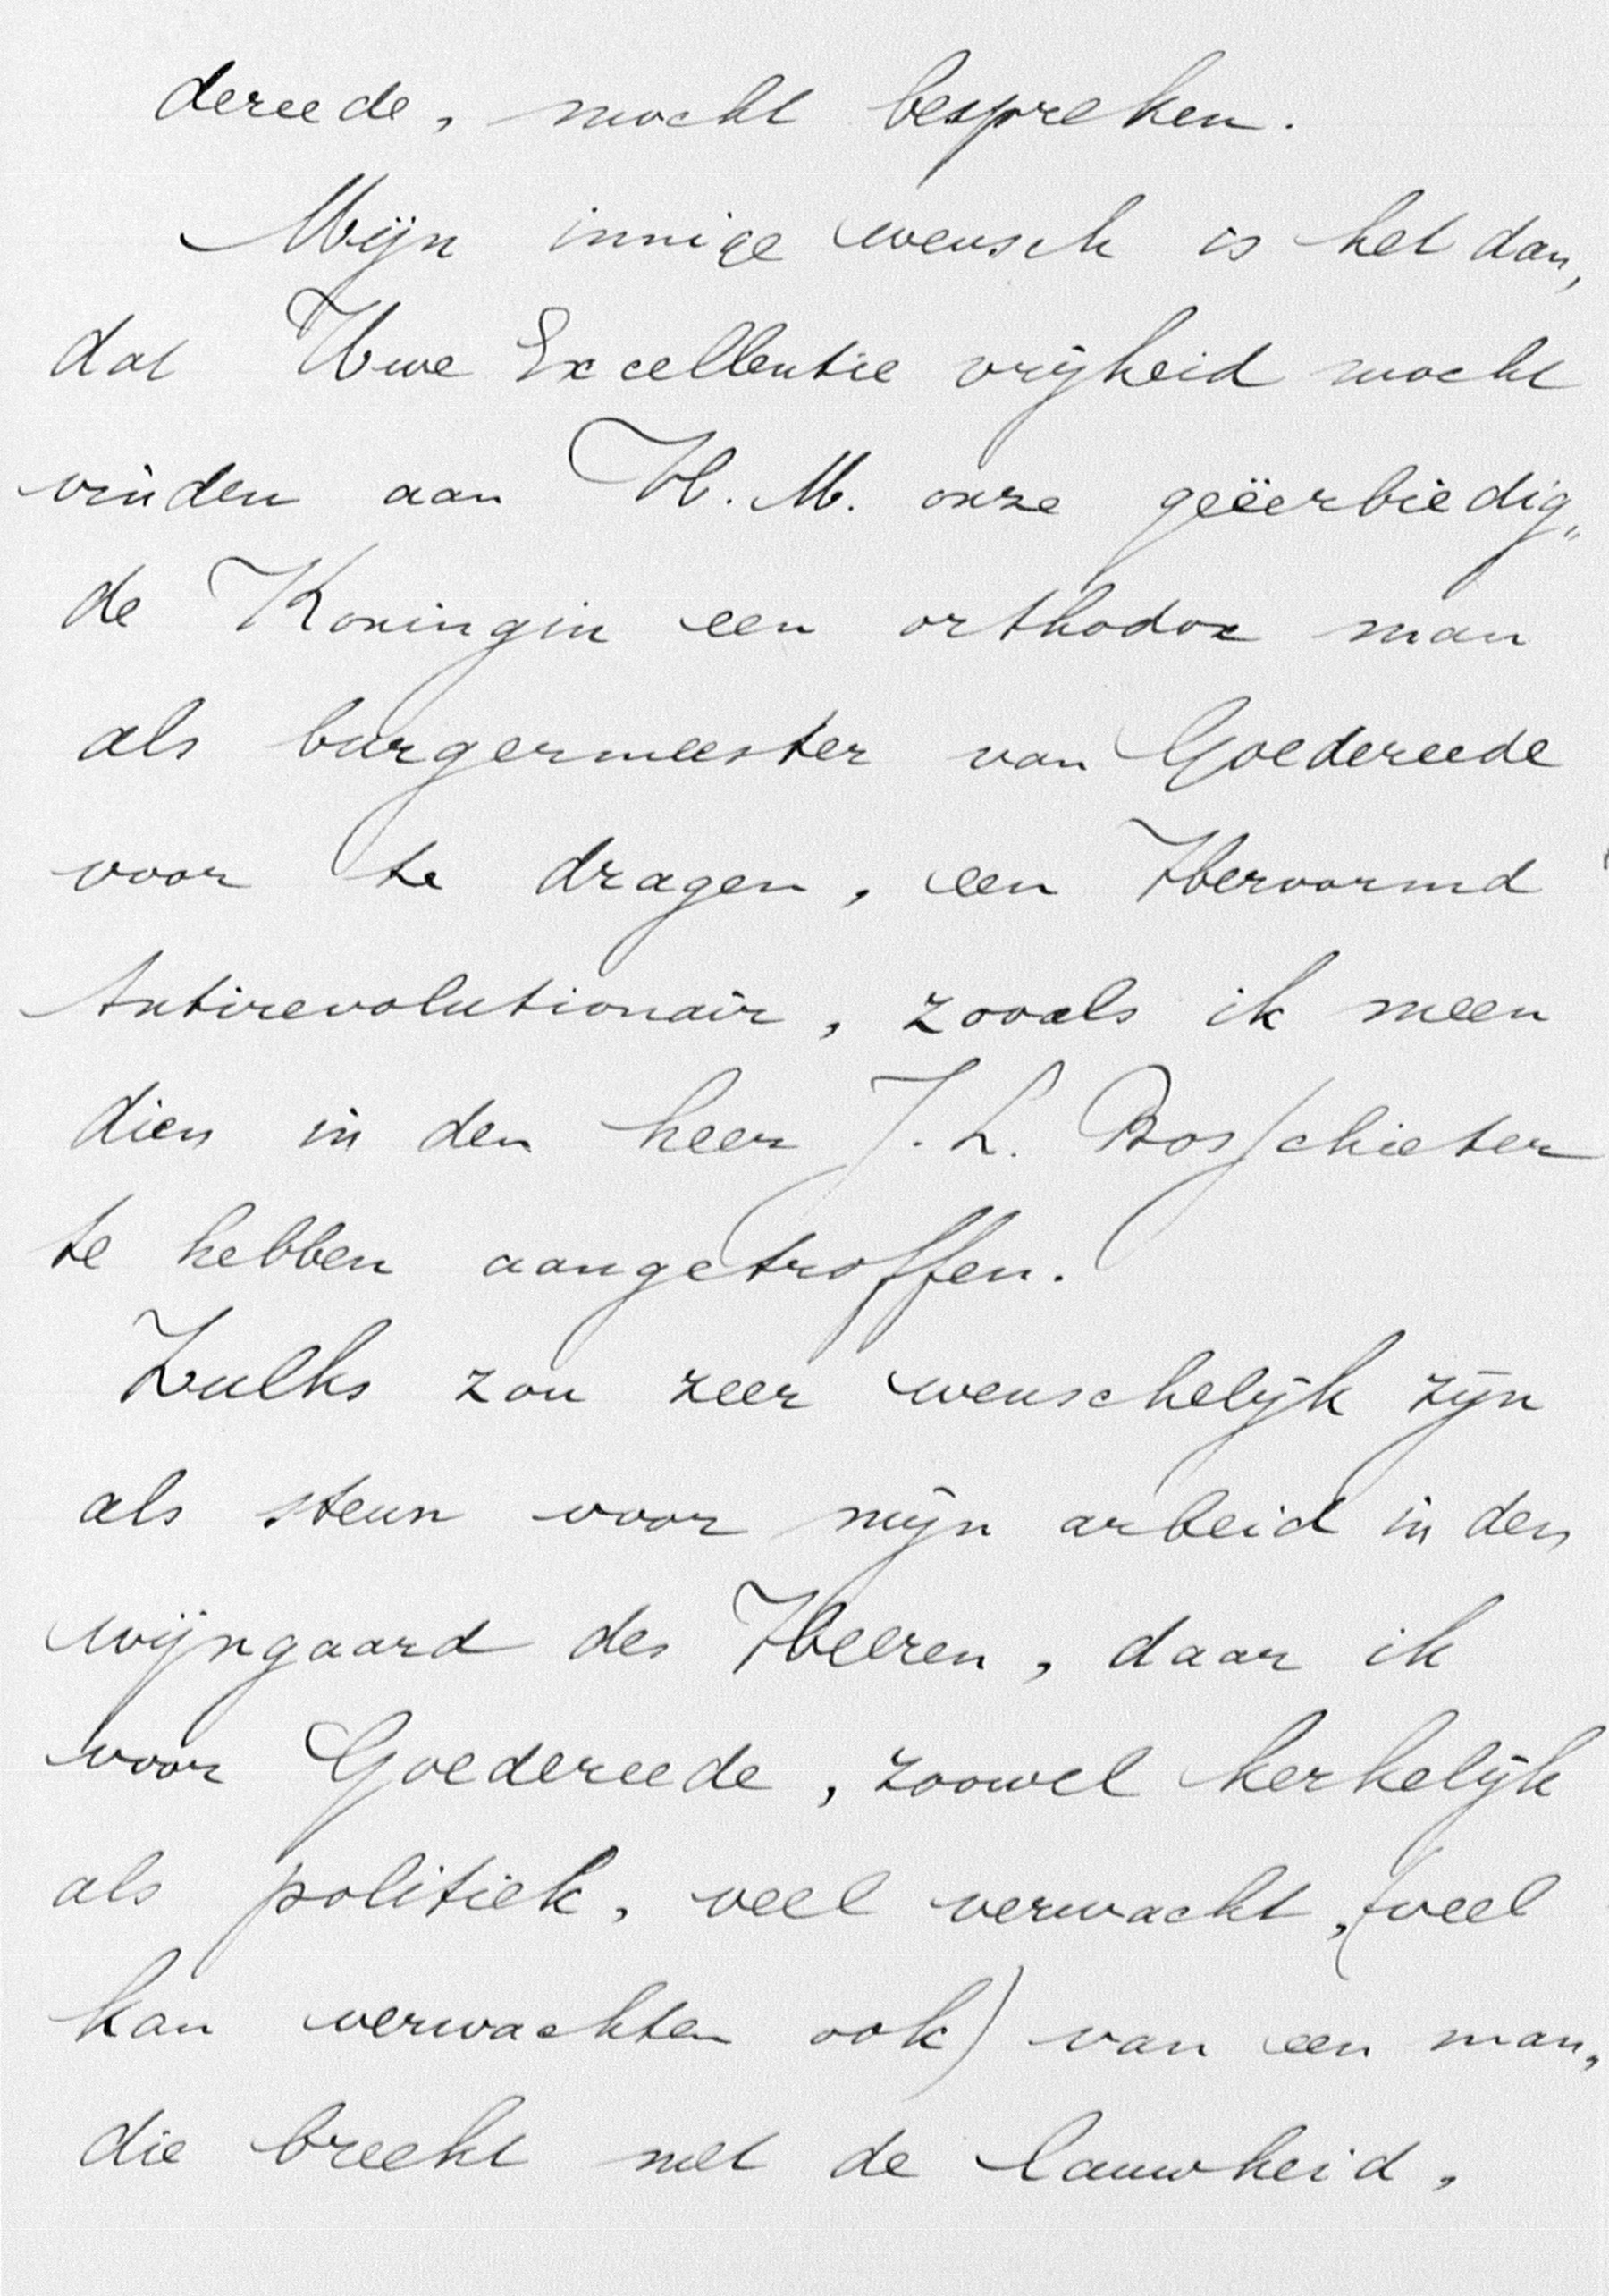 dereede, mocht bespreken.
Mijn innige wensch is het dan,
dat Uwe Excellentie vrijheid mocht
vinden aan H. M. onze geëerbiedig„
de Koningin een orthodox man
als burgermeester van Goedereede
voor te dragen, een Hervormd
Antirevolutionair, zooals ik meen
dien in den heer J. L. Bosschieter
te hebben aangetroffen.
Zulks zou zeer wenschelijk zijn
als steun voor mijn arbeid in den
wijngaard des Heeren, daar ik
voor Goedereede, zoowel kerkelijk
als politiek, veel verwacht, (veel
kan verwachten ook) van een man,
die breekt met de lauwheid,